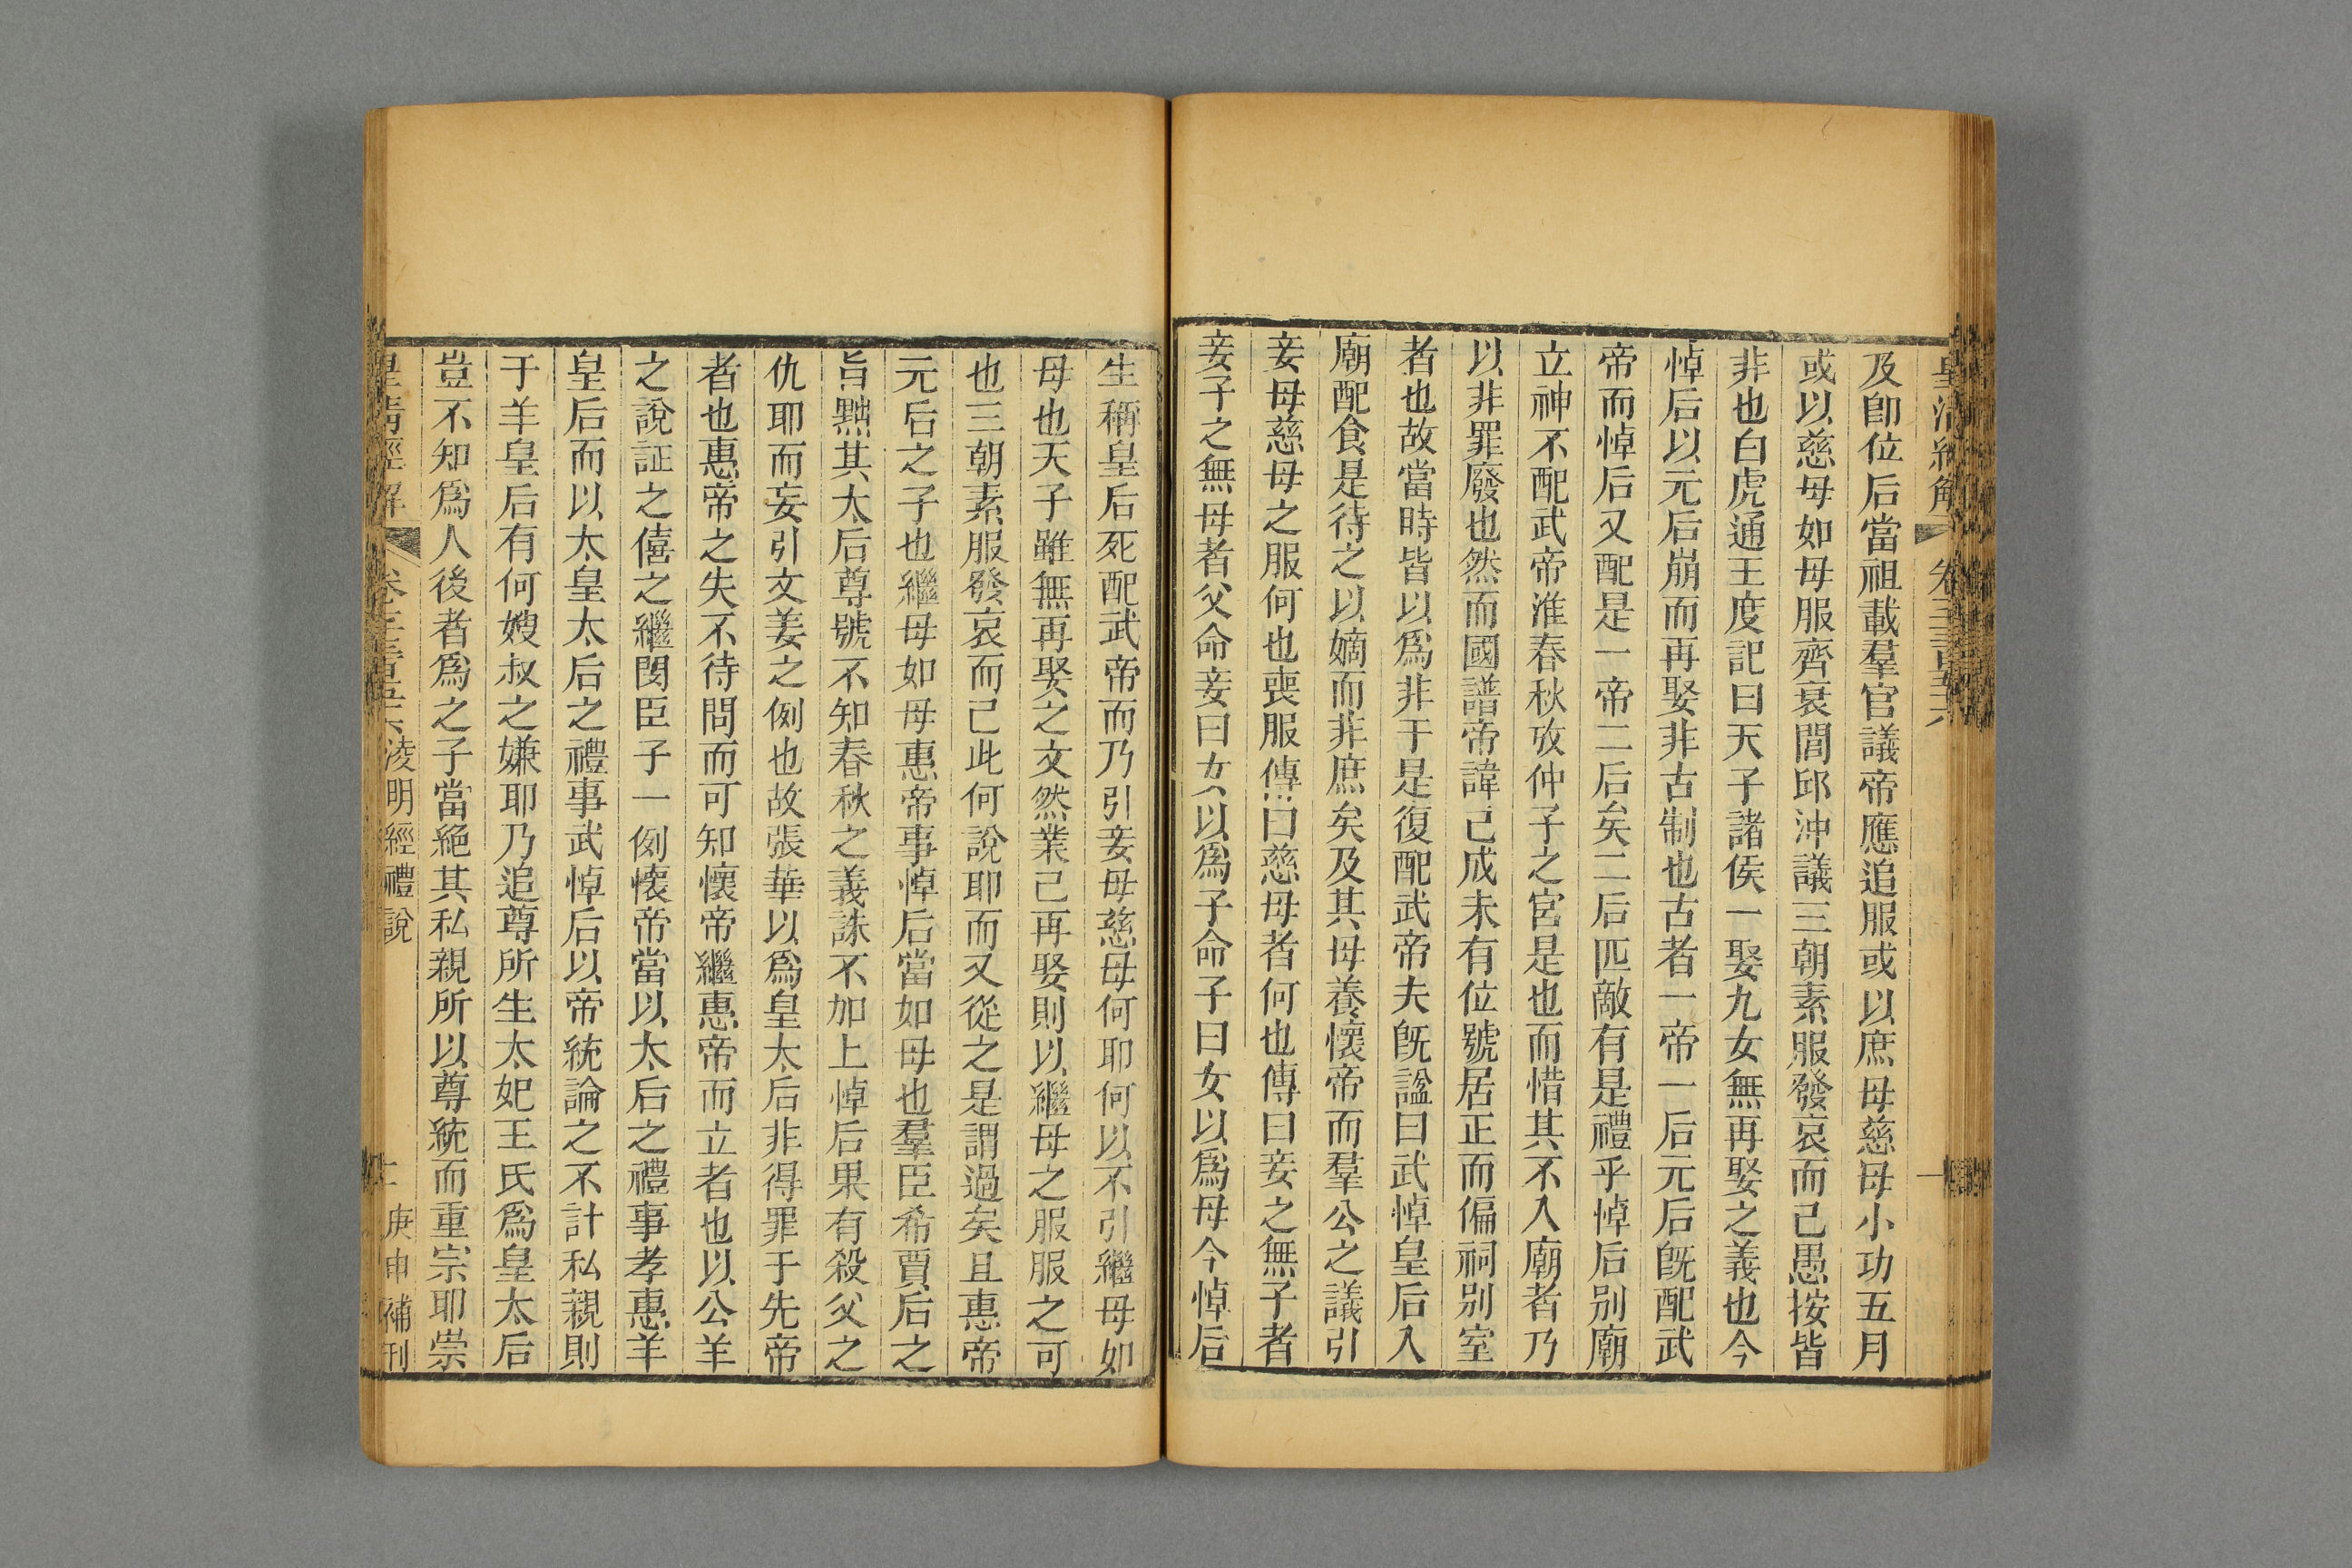 及卽位后當祖載羣官議帝應追服或以庶母慈母小功五月
或以慈母如母服齊衰閭邱沖議三朝素服發哀而已愚按皆
非也白虎通王度記曰天子諸侯一娶九女無再娶之義也今
悼后以元后崩而再娶非古制也古者一帝一后元后旣配武
帝而悼后又配是一帝二后矣二后匹敵有是禮乎悼后别廟
立神不配武帝淮春秋攷仲子之宮是也而惜其不入廟者乃
以非罪廢也然而國譜帝諱已成未有位號居正而偏祠别室
者也故當時皆以爲非于是復配武帝夫旣諡曰武悼皇后入
廟配食是待之以嫡而非庶矣及其母養懷帝而羣公之議引
妾母慈母之服何也喪服傳曰慈母者何也傳曰妾之無子者
妾子之無母者父命妾曰女以爲子命子曰女以爲母今悼后
生稱皇后死配武帝而乃引妾母慈母何耶何以不引繼母如
母也天子雖無再娶之文然業已再娶則以繼母之服服之可
也三朝素服發哀而已此何說耶而又從之是謂過矣且惠帝
元后之子也繼母如母惠帝事悼后當如母也羣臣希賈后之
旨黜其太后尊號不知春秋之義誅不加上悼后果有殺父之
仇耶而妄引文姜之例也故張華以爲皇太后非得罪于先帝
者也惠帝之失不待問而可知懷帝繼惠帝而立者也以公羊
之說証之僖之繼閔臣子一例懷帝當以太后之禮事孝惠羊
皇后而以太皇太后之禮事武悼后以帝統論之不計私親則
于羊皇后有何嫂叔之嫌耶乃追尊所生太妃王氏爲皇太后
豈不知爲人後者爲之子當絕其私親所以尊統而重宗耶崇
皇清經解 卷 凌明經禮說 庚申補刊